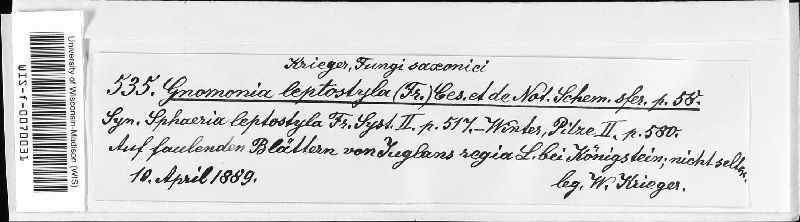 University of Wisconsin-Madison (WIS)
WIS-f-0070031
Krieger, Fungi saxonici
535. Gnomonia leptostyla (Fr.) Ces. et de Not. Schem. sfer. p. 58.
Syn. Sphaeria leptostyla Fr. Syst. II. p. 517. – Winter, Pilze II. p. 580.
Auf faulenden Blättern von Juglans regia L. bei Königstein; nicht selten.
10. April 1889. leg. W. Krieger.